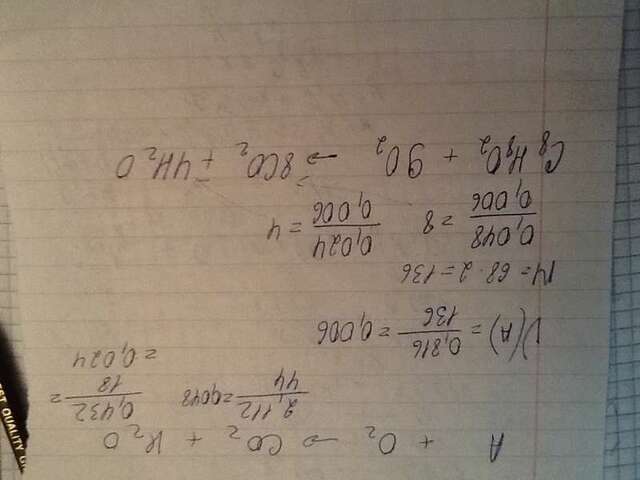 A + O₂ → CO₂ + H₂O
2,112/44 = 0,048    0,432/18 =
= 0,024
ν(A) = 0,816/136 = 0,006
M = 68 · 2 = 136
0,048/0,006 = 8    0,024/0,006 = 4
C₈H₈O₂ + 9O₂ → 8CO₂ + 4H₂O
QUALITY